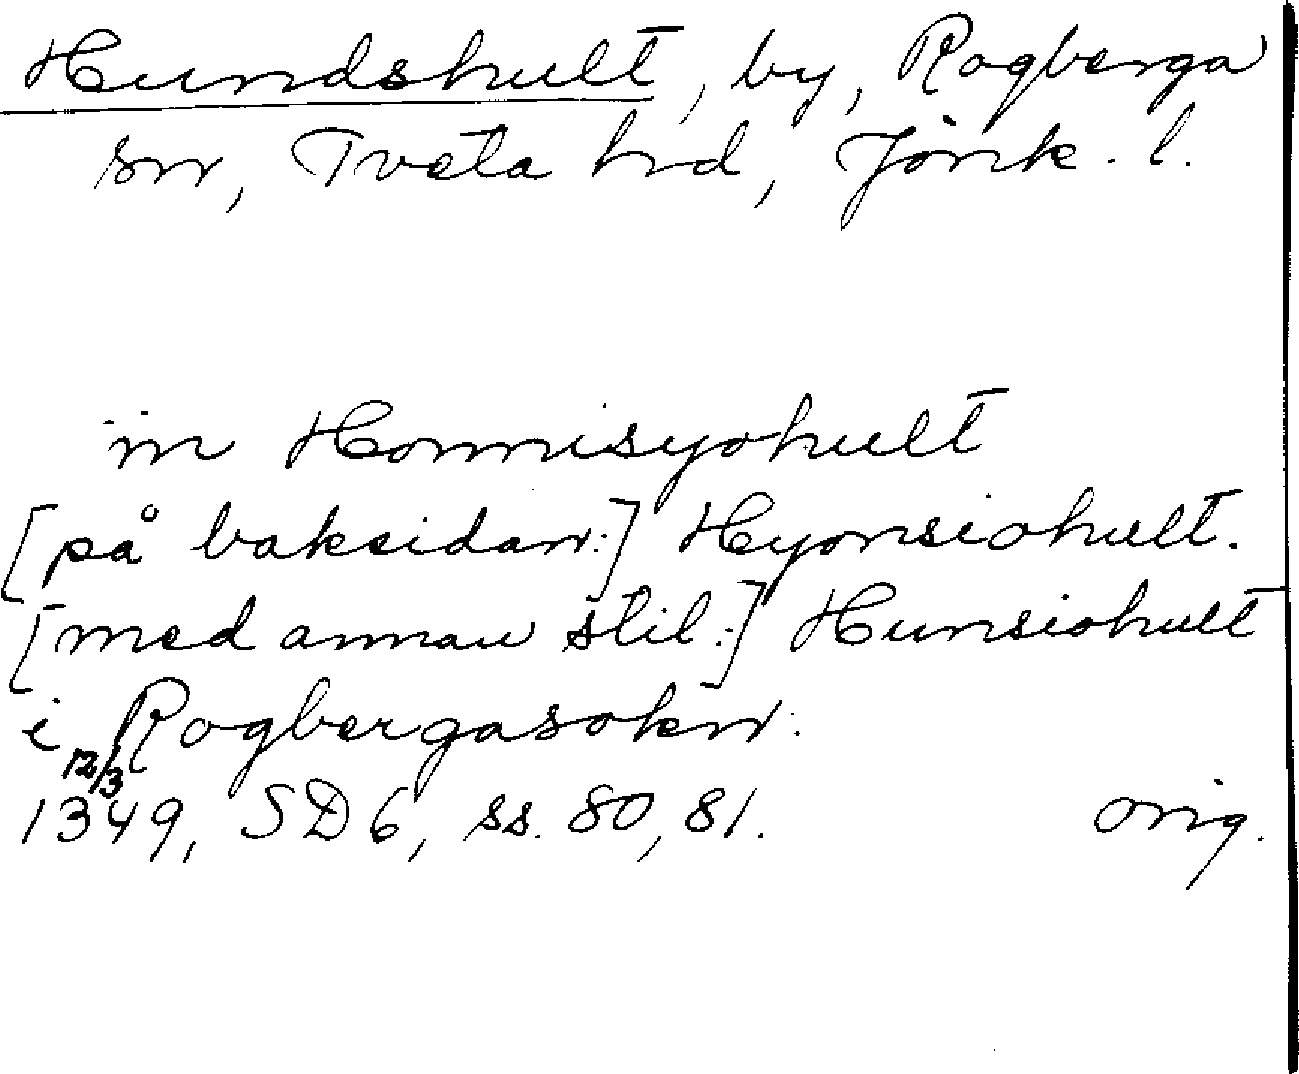 Hundshult, by, Rogberga
sn, Tveta hd, Jönk. l.
in Honnisyohult
[på baksidan:] Hyonsiohult.
[med annan stil:] Hunsiohult
i Rogbergasokn.
12/3
1349, SD 6, ss. 80, 81. orig.